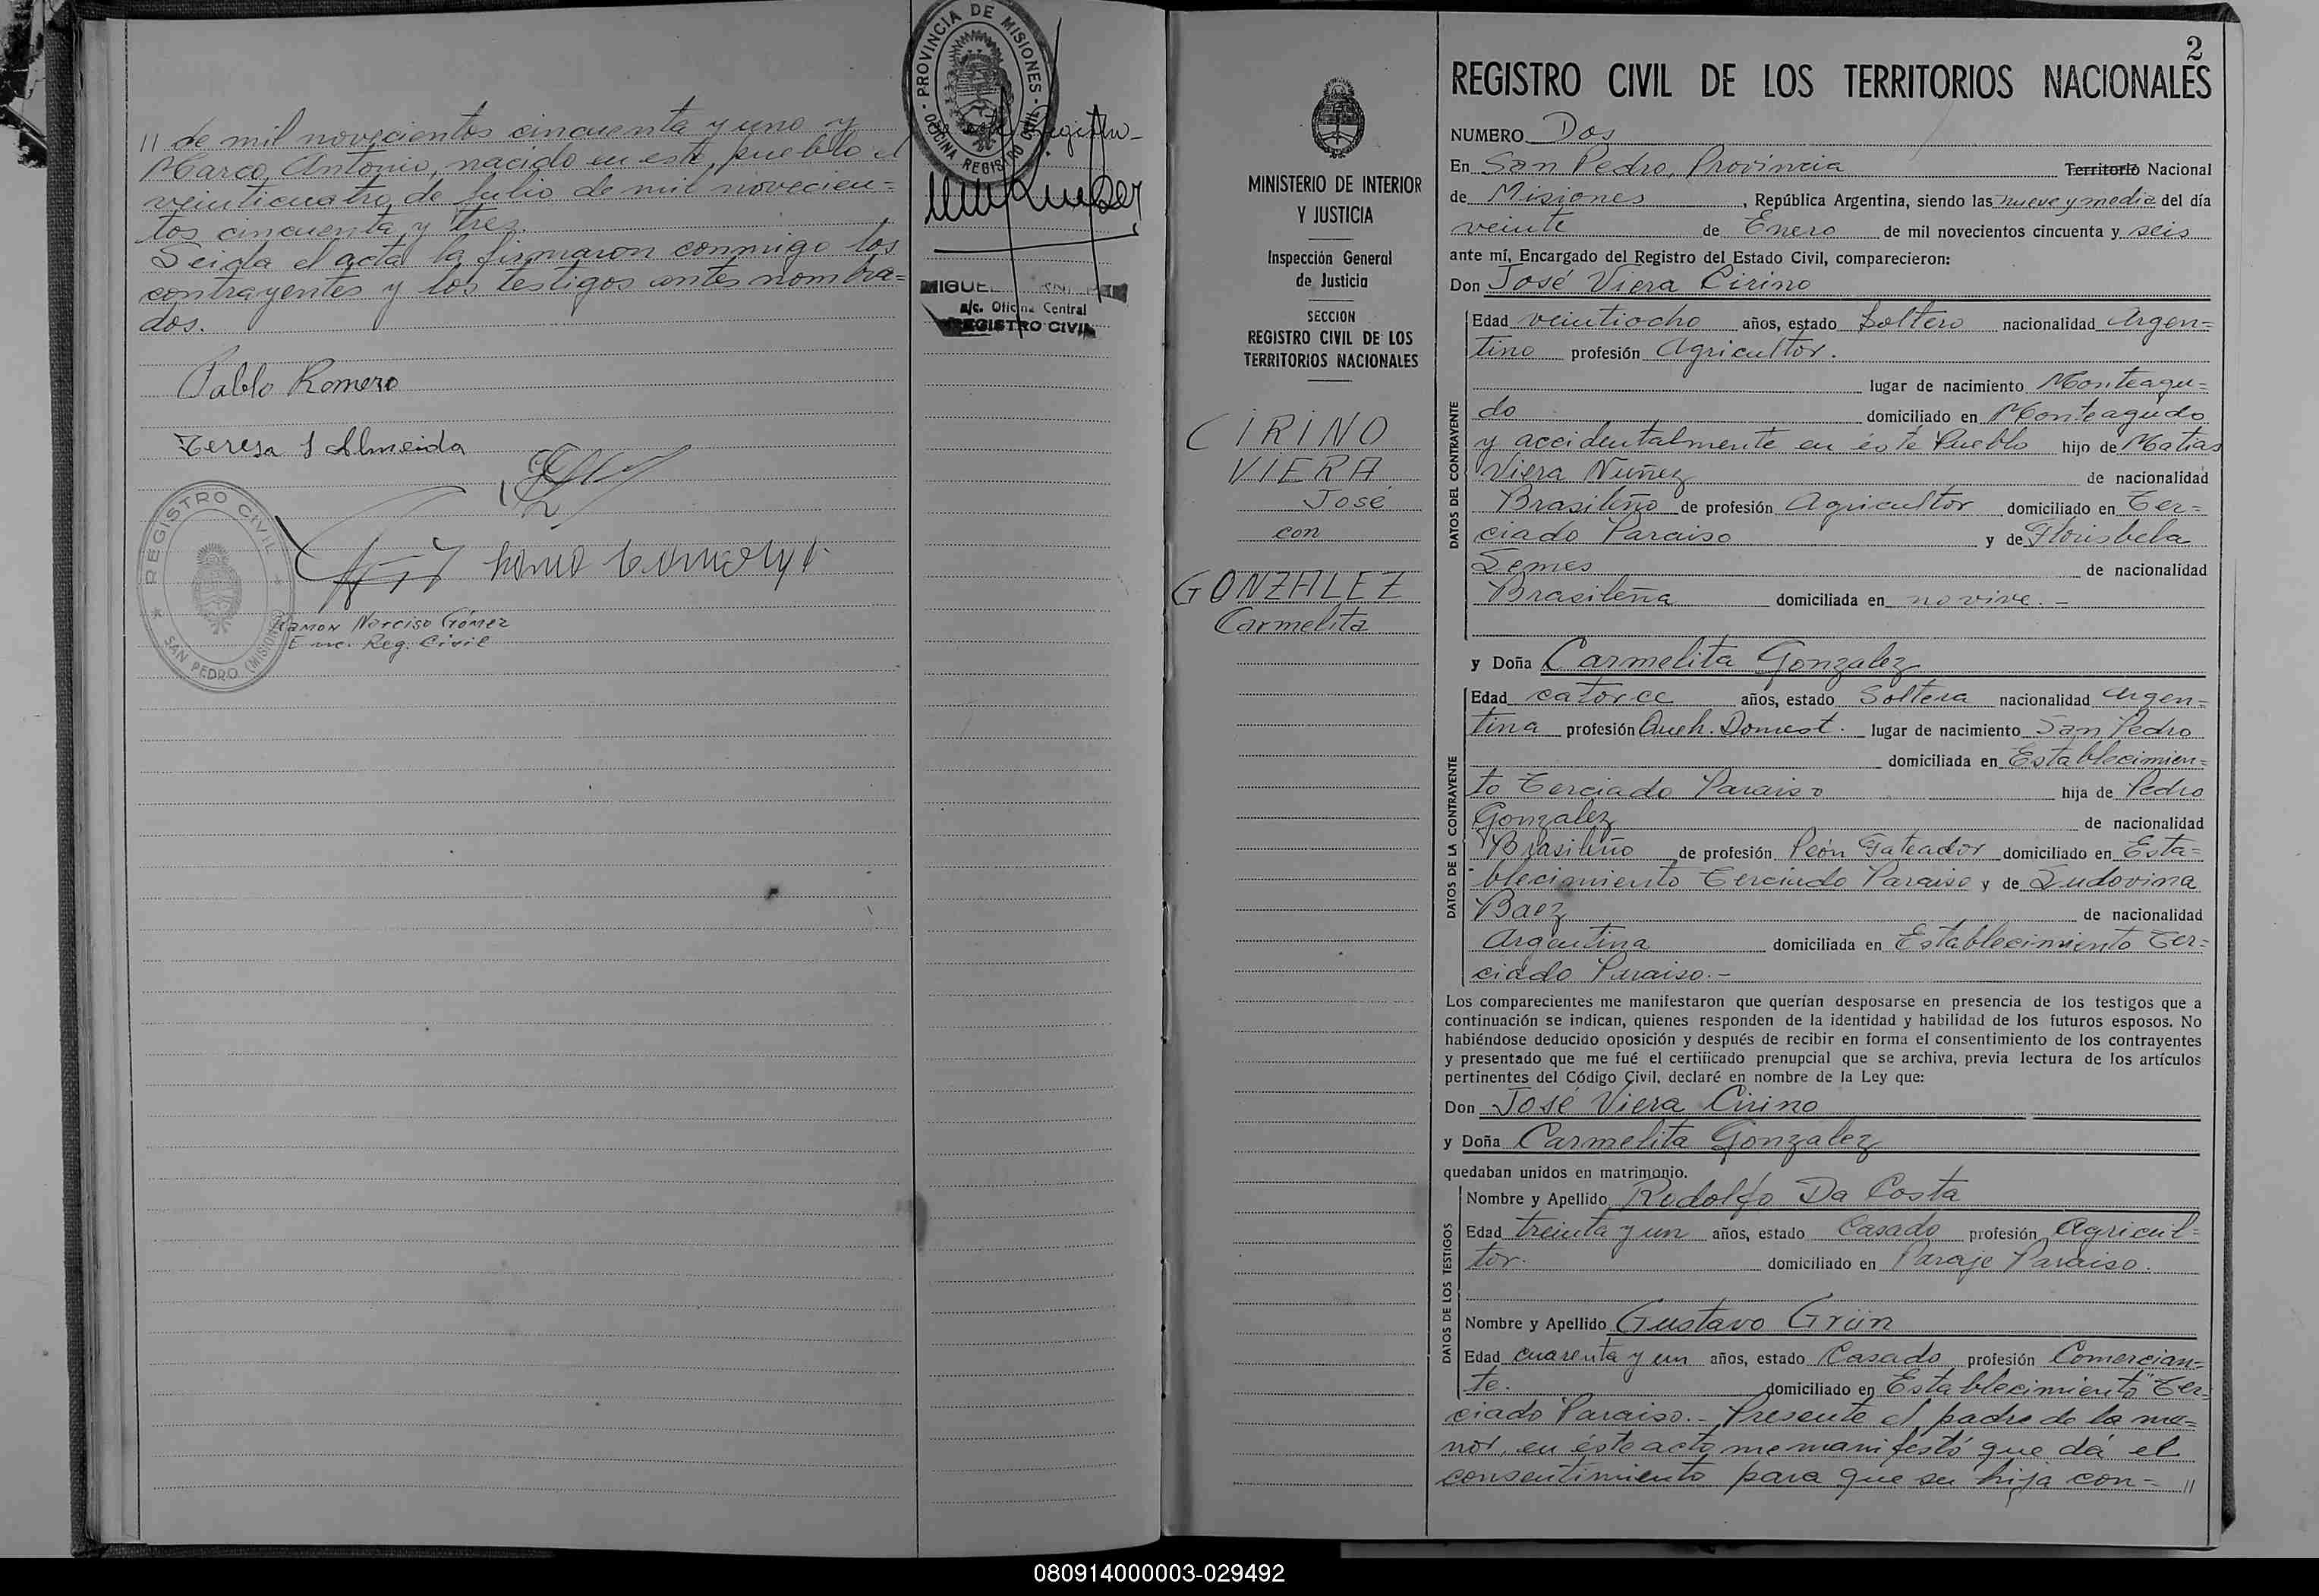 // de mil novecientos cincuenta y uno y
Marco Antonio, nacido en este pueblo el
veinticuatro de Julio de mil novecien=
tos cincuenta y tres.
Leida el acta la firmaron conmigo los
contrayentes y los testigos antes nombra=
dos.
Pablo Romero
Teresa S Almeida
REGISTRO CIVIL
SAN PEDRO (MISIONES)
Ramon Narciso Gómez
Enc. Reg. Civil
PROVINCIA DE MISIONES
OFICINA REGISTRO CIVIL
MIGUEL
a/c. Oficina Central
REGISTRO CIVIL
MINISTERIO DE INTERIOR
Y JUSTICIA
Inspección General
de Justicia
SECCION
REGISTRO CIVIL DE LOS
TERRITORIOS NACIONALES
CIRINO
VIERA
José
con
GONZALEZ
Carmelita
2
REGISTRO CIVIL DE LOS TERRITORIOS NACIONALES
NUMERO Dos
En San Pedro, Provincia Territorio Nacional
de Misiones, República Argentina, siendo las nueve y media del día
veinte de Enero de mil novecientos cincuenta y seis
ante mí, Encargado del Registro del Estado Civil, comparecieron:
Don José Viera Cirino
DATOS DEL CONTRAYENTE
Edad veintiocho años, estado Soltero nacionalidad Argen=
tino profesión Agricultor.
lugar de nacimiento Monteagu=
do domiciliado en Monteagudo
y accidentalmente en éste Pueblo hijo de Matias
Viera Nuñez de nacionalidad
Brasileño de profesión Agricultor domiciliado en Ter=
ciado Paraiso y de Florisbela
Lemes de nacionalidad
Brasileña domiciliada en no vive. -
y Doña Carmelita Gonzalez
DATOS DE LA CONTRAYENTE
Edad catorce años, estado Soltera nacionalidad Argen=
tina profesión Queh. Domest. lugar de nacimiento San Pedro
domiciliada en Establecimien=
to Terciado Paraiso hija de Pedro
Gonzalez de nacionalidad
Brasileño de profesión Peón Tateador domiciliado en Esta=
blecimiento Terciado Paraiso y de Ludovina
Baez de nacionalidad
Argentina domiciliada en Establecimiento Ter=
ciado Paraiso. -
Los comparecientes me manifestaron que querían desposarse en presencia de los testigos que a
continuación se indican, quienes responden de la identidad y habilidad de los futuros esposos. No
habiéndose deducido oposición y después de recibir en forma el consentimiento de los contrayentes
y presentado que me fué el certificado prenupcial que se archiva, previa lectura de los artículos
pertinentes del Código Civil, declaré en nombre de la Ley que:
Don José Viera Cirino
y Doña Carmelita Gonzalez
quedaban unidos en matrimonio.
DATOS DE LOS TESTIGOS
Nombre y Apellido Rodolfo Da Costa
Edad treinta y un años, estado Casado profesión Agricul=
tor. domiciliado en Paraje Paraiso.
Nombre y Apellido Gustavo Grün
Edad cuarenta y un años, estado Casado profesión Comercian=
te. domiciliado en Establecimiento "Ter=
ciado Paraiso. - Presente el padre de la me=
nor, en éste acto me manifestó que dá el
consentimiento para que su hija con= //
080914000003-029492